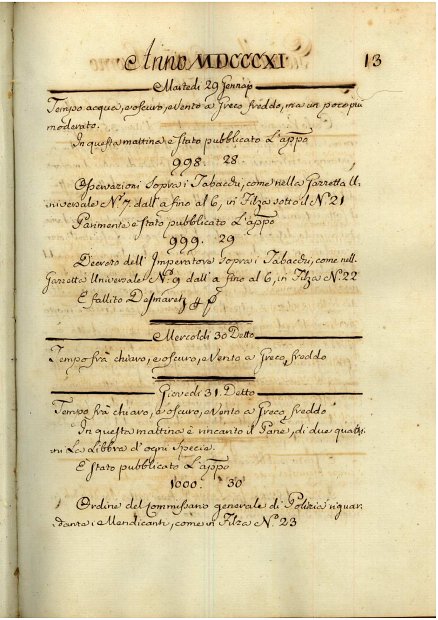 Anno MDCCCXI 13
Martedì 29 Gennajo
Tempo acqua, e oscuro, e Vento a Greco freddo, ma un poco più
moderato.
In questa mattina è stato pubblicato L'appo
998. 28.
Osservazioni sopra i Tabacchi, come nella Gazzetta U=
niversale Nº 7, dall' a fino al 6, in Filza sotto il Nº 21
Parimente è stato pubblicato L'appo
999. 29
Decreto dell' Imperatore sopra i Tabacchi, come nell.
Gazzetta Universale Nº 9 dall' a fino al 6, in Filza Nº 22
È fallito Desmaretz
Mercoldì 30 Detto
Tempo frà chiaro, e oscuro, e Vento a Greco, freddo
Giovedì 31. Detto
Tempo frà chiaro, e oscuro, e Vento a Greco, freddo
In questa mattina è rincarito il Pane, di due quatri=
ni La Libbra d'ogni specie.
È stato pubblicato L'appo
1000. 30
Ordine del Commissario generale di Polizia riguar=
dante i Mendicanti, come in Filza Nº 23